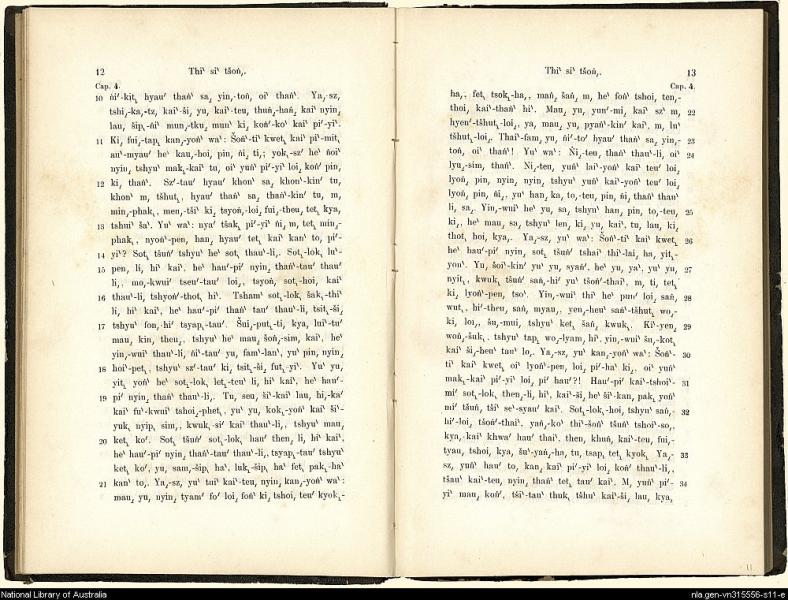 12 Thi‛ si‛ tšoń,.
Cap. 4.
10 ńi′-kit, hyau′ thań‛ sa, yin,-toń, oi‛ thań‛. Ya,-sz,
tshi,-ka,-tz, kai‛-ši, yu, kai‛-teu, thuń,-hań, kai‛ nyin,
lau, šip,-ńi‛ mun,-tku, mun‛ ki, koń′-ko‛ kai‛ pi′-yi‛.
11 Ki, fui,-tap, kan,-yoń‛ wa‛: Šoń‛-ti‛ kwet, kai‛ pi‛-mit,
au‛-myau′ he‛ kau,-hoi, pin, ńi, ti,; yok,-sz′ he‛ ńoi‛
nyin, tshyu‛ mak,-kai‛ tu, oi‛ yuń‛ pi′-yi‛ loi, koń′ pin,
12 ki, thań‛. Sz′-tau′ hyau′ khon‛ sa, khon‛-kin′ tu,
khon‛ m, tšhut, hyau′ thań‛ sa, thań‛-kin′ tu, m,
min,-phak, men,-tši‛ ki, tsyoń,-loi, fui,-theu, tet, kya,
13 tshui‛ ša‛. Yu‛ wa‛: nya′ tšak, pi′-yi‛ ńi, m, tet, min,-
phak, nyoń‛-pen, han, hyau′ tet, kai‛ kan‛ to, pi′-
14 yi‛? Sot, tšuń′ tshyu‛ he‛ sot, thau‛-li,. Sot,-lok, lu‛-
15 pen, li, hi‛ kai‛, he‛ hau′-pi′ nyin, thań‛-tau′ thau′
li,, mo,-kwui′ tseu′-tau′ loi,, tsyoń, sot,-hoi, kai‛
16 thau‛-li, tshyoń′-thot, hi‛. Tsham‛ sot,-lok, šak,-thi‛
li, hi‛ kai‛, he‛ hau′-pi′ thań‛ tau′ thau‛-li, tsit,-ši,
17 tshyu‛ fon, hi′ tsyap,-tau′. Šui,-put,-ti, kya, lui‛-tu′
mau, kin, theu,, tshyu‛ he‛ mau, šoń,-sim, kai‛, he‛
yin,-wui‛ thau‛-li, ńi‛-tau′ yu, fam′-lan‛, yu′ pin, nyin,
18 hoi′-pet, tshyu‛ sz′-tau′ ki, tsit,-ši, fut,-yi‛. Yu′ yu,
yit, yoń‛ he‛ sot,-lok, let,-teu‛ li, hi‛ kai‛, he‛ hau′-
19 pi′ nyin, thań‛ thau‛-li,. Tu, seu, ši‛-kai‛ lau, hi,-ka′
kai‛ fu‛-kwui‛ tshoi,-phet, yu′ yu, kok,-yoń‛ kai‛ ši‛-
yuk, nyip, sim,, kwuk,-si′ kai‛ thau‛-li,, tshyu‛ mau,
20 ket, ko′. Sot, tšuń′ sot,-lok, hau′ then, li, hi‛ kai‛,
he‛ hau′-pi′ nyin, thań‛-tau′ thau‛-li,, tsyap,-tau′ tshyu‛
ket, ko′, yu, sam,-šip, ha‛, luk,-šip, ha‛ fet, pak,-ha‛
21 kan‛ to,. Ya,-sz, yu‛ tui‛ kai‛-teu, nyin, kan,-yoń‛ wa‛:
mau, yu, nyin, tyam′ fo′ loi, foń‛ ki, tshoi, teu′ kyok,-
Thi‛ si‛ tšoń,. 13
Cap. 4.
ha,, fet, tsok,-ha,, mań, šań, m, he‛ foń‛ tshoi, ten,-
22 thoi, kai‛-thań‛ hi‛. Mau, yu, yun′-mi, kai‛ sz‛ m,
hyen′-tšhut,-loi,, ya, mau, yu, pyań‛-kin′ kai‛, m, lu‛
23 tšhut,-loi,. Thai‛-fam, yu, ńi′-to′ hyau′ thań‛ sa, yin,-
24 toń, oi‛ thań‛! Yu‛ wa‛: Ńi,-teu, thań‛ thau‛-li, oi‛
lyu,-sim, thań‛. Ni,-teu, yuń‛ lai‛-yoń‛ kai‛ teu′ loi,
lyoń, pin, nyin, nyin, tshyu‛ yuń‛ kai‛-yoń‛ teu′ loi,
lyoń, pin, ńi,, yu‛ han, ka, to,-teu, pin, ńi, thań‛ thau‛
25 li, sa,. Yin,-wui‛ he‛ yu, sa, tshyu‛ han, pin, to,-teu,
ki,, he‛ mau, sa, tshyu‛ len, ki, yu, kai‛, tu, lau, ki,
26 thot, hoi, kya,. Ya,-sz, yu‛ wa‛: Šoń‛-ti‛ kai‛ kwet,
he‛ hau′-pi′ nyin, sot, tšuń′ tshai‛ thi‛-lai, ha, yit,-
27 yon‛. Yu, šoi‛-kin′ yu‛ yu, syań′, he‛ yu, ya‛, yu‛ yu,
nyit,, kwuk, tšuń′ sań,-hi′ yu‛ šoń‛-thai‛, m, ti, tet,
28 ki, lyoń‛-pen, tso‛. Yin,-wui‛ thi‛ he‛ pun′ loi, sań,
wut,, hi′-theu, sań, myau,, yen,-heu‛ sań‛-tšhut, wo,-
29 ki, loi,, šu,-mui, tshyu‛ ket, šań, kwuk,. Ki‛-yen,
woń,-šuk,, tshyu‛ tap, wo,-lyam, hi‛, yin,-wui‛ šu,-kot,
30 kai‛ ši,-heu‛ tau′ lo,. Ya,-sz, yu‛ kan,-yoń‛ wa‛: Šoń‛-
ti‛ kai‛ kwet, oi‛ lyoń‛-pen, loi, pi′-ha‛ ki,, oi‛ yuń‛
31 mak,-kai‛ pi′-yi‛ loi, pi′ hau′?! Hau′-pi′ kai‛-tshoi‛-
mi′ sot,-lok, then,-li, hi‛, kai‛-ši, he‛ ši‛-kan, pak, yoń‛
32 mi′ tšuń, tši‛ se‛-syau′ kai‛. Sot,-lok,-hoi, tshyu‛ sań,-
hi′-loi, tšoń′-thai‛, yań,-ko‛ thi‛-šoń‛ tšuń‛ tshoi‛-so,,
kya,-kai‛ khwa′ hau′ thai‛, then, khuń, kai‛-teu, fui,-
33 tyau, tshoi, kya, šu‛-yań,-ha, tu, tsap, tet, kyok, Ya,-
sz, yuń‛ hau′ to, kan, kai‛ pi′-yi‛ loi, koń′ thau‛-li,,
34 tšau‛ kai‛-teu, nyin, thań‛ tet, tau′ kai‛. M, yuń‛ pi′-
yi‛ mau, koń′, tši‛-tau‛ thuk, tšhu‛ kai‛-ši, lau, kya,
National Library of Australia nla.gen-vn315556-s11-e